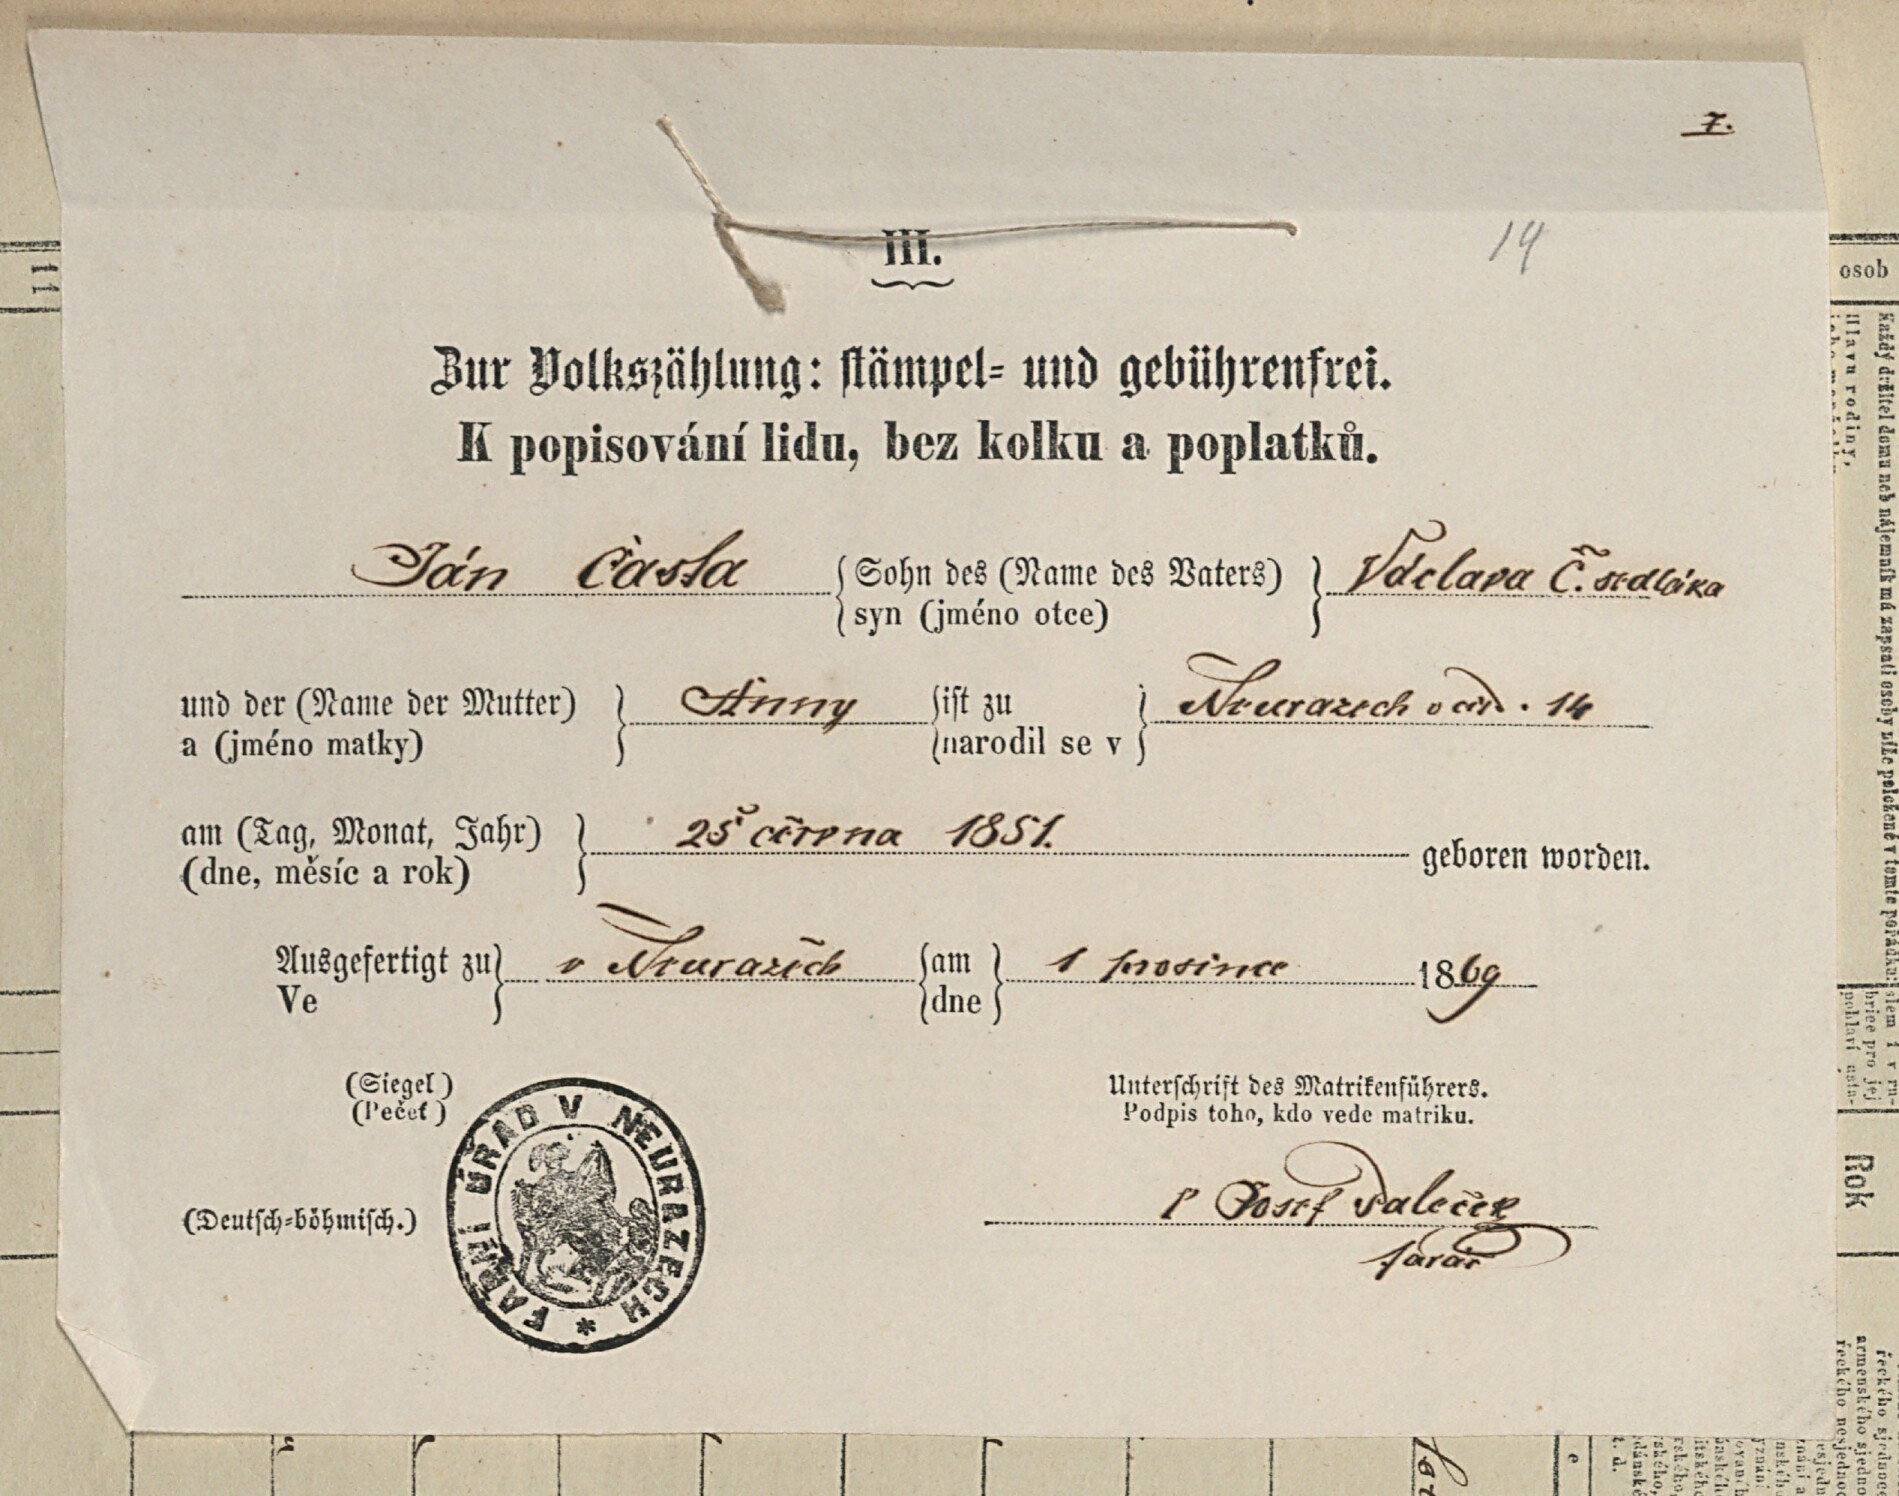 7.
14
III.
Zur Volkszählung: stämpel- und gebührenfrei.
K popisování lidu, bez kolku a poplatků.
Ján Časta { Sohn des (Name des Vaters) } Václava Č. sedláka
syn (jméno otce)
und der (Name der Mutter) } Anny { ist zu } Neurazech v čís. 14
a (jméno matky) narodil se v
am (Tag, Monat, Jahr) } 25 června 1851. geboren worden.
(dne, měsíc a rok)
Ausgefertigt zu } v Neurazích { am } 1 prosince 1869
Ve dne
(Siegel)
(Pečeť)
Unterschrift des Matrikenführers.
Podpis toho, kdo vede matriku.
FARNÍ ÚŘAD V NEURAZECH *
P Josef Paleček
farář
(Deutsch-böhmisch.)
11
osob
Hlavu rodiny,
Každý držitel domu neb nájemník má zapsati osoby níže položené v tomto pořádku:
Rok